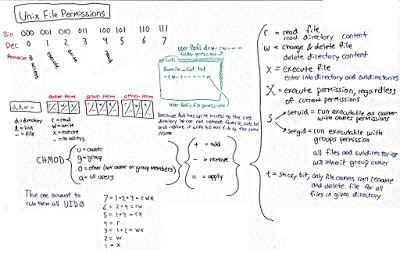 Unix File Permissions
Bin 000 001 010 011 100 101 110 111
Dec 0 1 2 3 4 5 6 7
no access
execute
write
read
User Bob's drw-r-----
Cats
favorite_cat.txt
-rw-r-----
User Bob's file permissions
Because Bob has write access to the cats
directory he can not
and replace it with his own file by the same
name
owner perm group perm other perm
d = directory
l = link
- = file
r = read
w = write
x = execute
- = no access
CHMOD
u = owner
g = group
o = other (not owner or group members)
a = all users
+ = add
- = remove
= = apply
The one account to
rule them all UID 0
7 = 1+2+4 = rwx
6 = 2+4 = rw
5 = 1+4 = rx
4 = r
3 = 1+2 = wx
2 = w
1 = x
r = read file
read directory content
w = change & delete file
delete directory content
x = execute file
enter into directory and subdirectories
X = execute permission, regardless
of current permissions
s
setuid = run executable as owner
with owner permissions
setgid = run executable with
groups permission
all files and subdirectories
will inherit group owner
t = sticky bit, only file owners can rename
and delete file for all
files in given directory